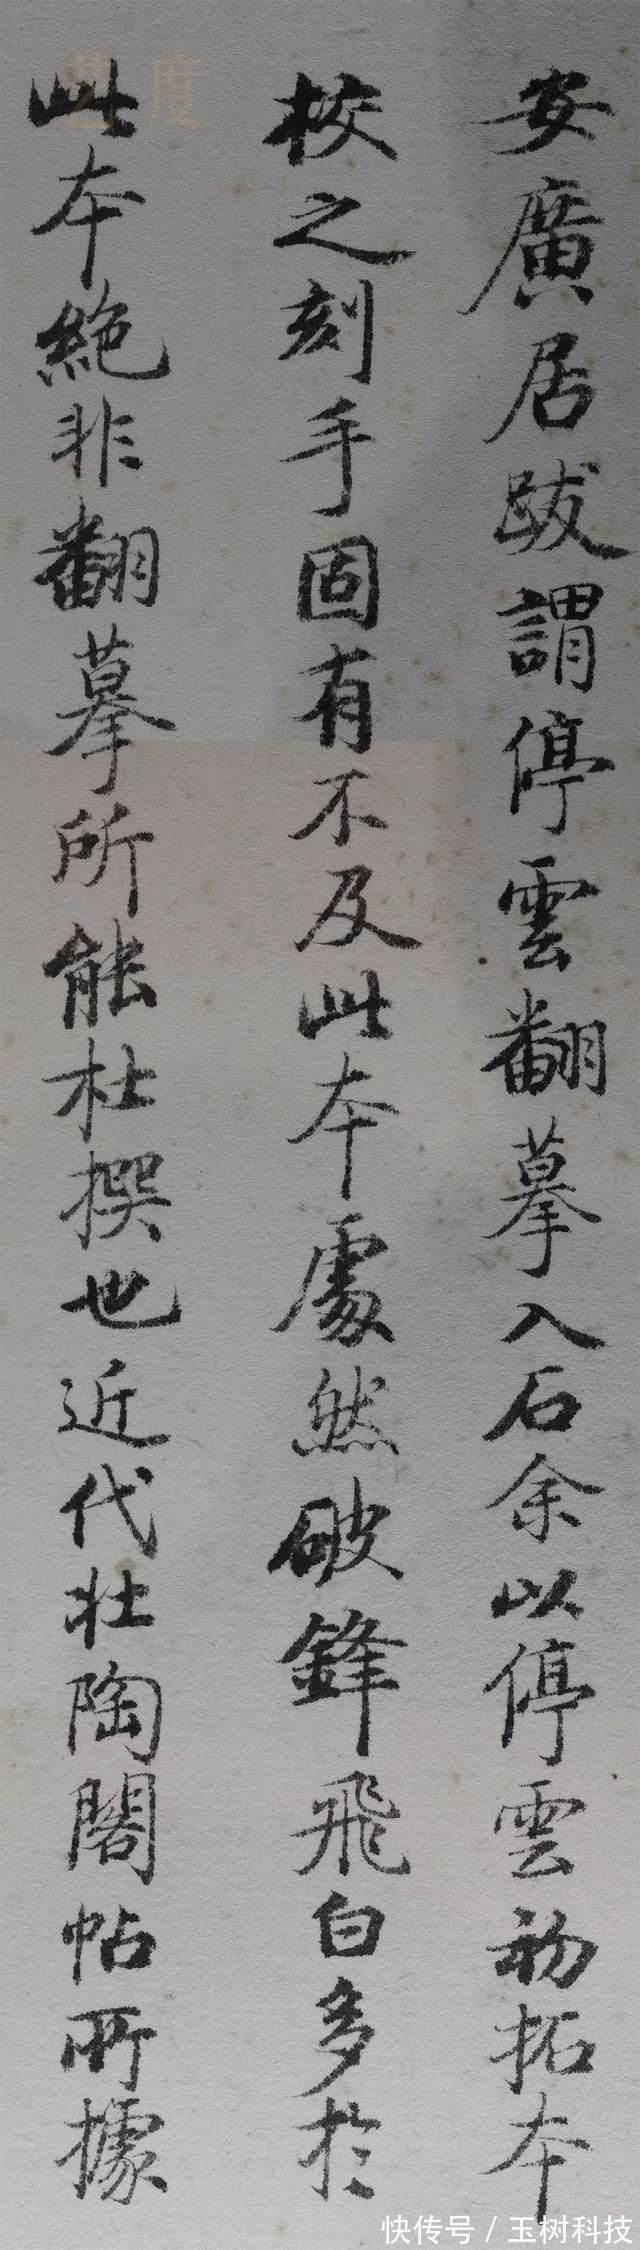 安廣居跋謂停雲翻摹入石余以停雲初拓本
校之刻手固有不及此本處然破鋒飛白多於
此本絶非翻摹所能杜撰也近代壯陶閣帖所據
藝度
快传号 / 玉树科技